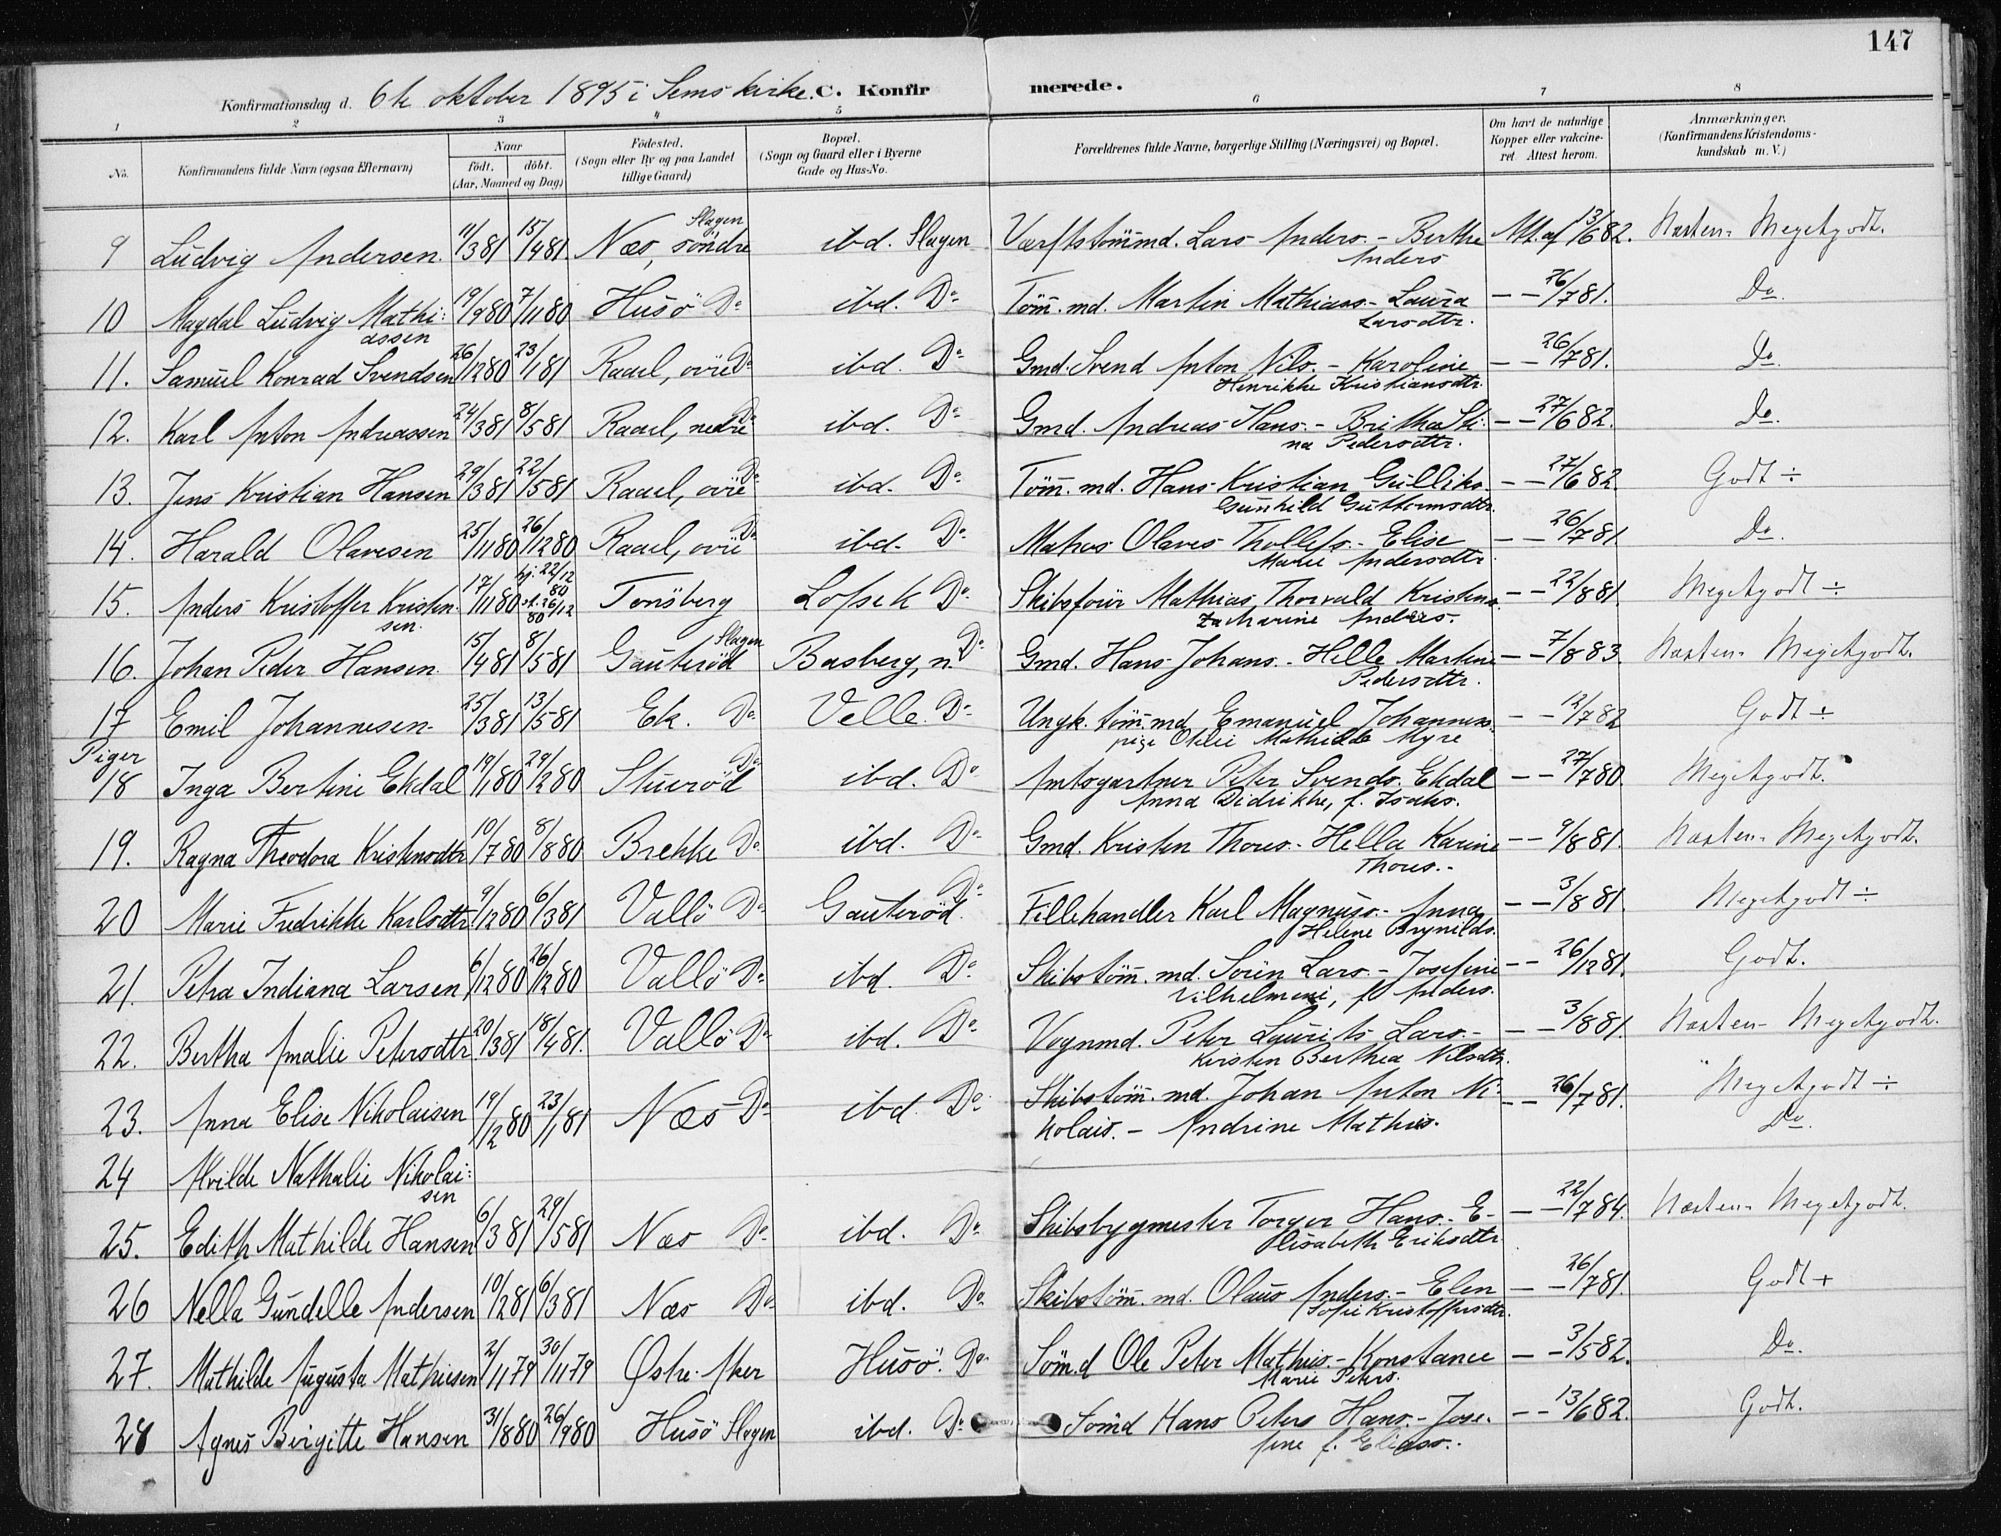 147
Konfirmationsdag d. 6te oktober 1895 i Sems kirke. C. Konfirmerede.
1 2 3 4 5 6 7 8
No. Konfirmandens fulde Navn (ogsaa Efternavn) Naar født. døbt. (Aar, Maaned og Dag) Fødested. (Sogn eller By og paa Landet tillige Gaard) Bopæl. (Sogn og Gaard eller i Byerne Gade og Hus-No. Forældrenes fulde Navne, borgerlige Stilling (Næringsvei) og Bopæl. Om havt de naturlige Kopper eller vakcineret Attest herom. Anmærkninger. (Konfirmandens Kristendomskundskab m. V.)
9 Ludvig Andersen. 11/3 81 15/4 81 Næs, søndre Slagen ibd. Slagen Værftstømmd. Lars Anders. - Berthe Anders Att. af 13/6 82. Næsten Megetgodt.
10 Magdal Ludvig Mathiassen 19/9 80 7/11 80 Husö Do ibd. Do Tøm. md. Martin Mathias - Laura Larsdtr. — — 26/7 81. Do.
11. Samuel Konrad Svendsen 26/12 80 23/1 81 Raael, ovre Do ibd. Do Gmd. Svend Anton Nils. - Karoline Henrikke Kristiansdtr. — — 26/7 81. Do.
12. Karl Anton Andreassen 24/3 81 8/5 81 Raael, nedre Do ibd. Do Gmd. Andreas Hans. - Brithe Stina Pedersdtr. — — 27/6 82. Do.
13. Jens Kristian Hansen 29/3 81 22/5 81 Raael, ovre Do ibd. Do Tøm. md. Hans Kristian Gulliks. Gunhild Guttormsdtr. — — 27/6 82. Godt ÷
14. Harald Olavesen 25/11 80 26/12 80 Raael, ovre Do ibd. Do Matros Olaves Thollefs. - Elise Marie Andersdtr. — — 26/7 81. Do.
15. Anders Kristoffer Kristensen. 17/11 80 hj. 22/12 80 26/12 80 Tønsberg Lofsek Do Skibsförer Mathias Thorvald Kristens. Zacharine Anders. — — 22/8 81. Megetgodt ÷
16. Johan Peder Hansen. 15/4 81 8/5 81 Gauterød Slagen Basberg, n. Do Gmd. Hans Johans. - Helle Martine Pedersdtr. — — 7/8 83. Næsten Megetgodt.
17 Emil Johannesen. 25/3 81 13/5 81 Ek. Do Velle. Do Ungk. tømmd Emanuel Johannes. pige Otilie Mathilde Myre — — 12/7 82 Godt ÷
Piger
18 Inga Bertine Ekdal 19/1 80 29/2 80 Stuerød Do ibd. Do Amtsgartner Peter Svends. Ekdal Anna Didrikke, f. Isaks. — — 27/7 80. Megetgodt.
19. Ragna Theodora Kristensdtr 10/7 80 8/8 80 Brekke Do ibd. Do Gmd. Kristen Thores. - Hella Karine Thores. — — 9/8 81. Næsten Megetgodt.
20 Marie Fredrikke Karlsdtr. 9/12 80 6/3 81 Vallö Do Gauterød. Do Fillehandler Karl Magnus. - Anna Helene Brynilds. — — 3/8 81. Megetgodt ÷
21. Petra Indiana Larsen 6/12 80 26/12 80 Vallö Do ibd. Do Skibstøm. md. Sören Lars. - Josefine Vilhelmine, f. Anders. — — 26/12 81. Godt.
22. Bertha Amalie Petersdtr. 20/3 81 18/4 81. Vallö Do ibd. Do Vognmd. Peter Laurits Lars. - Kirsten Berthea Nilsdtr. — — 3/8 81. Næsten Megetgodt.
23. Anna Elise Nikolaisen 19/12 80 23/1 81 Næs Do ibd. Do Skibstøm. md. Johan Anton Nikolais. - Andrine Mathis. — — 26/7 81. Megetgodt ÷
24 Alvilde Nathalie Nikolaisen Do.
25. Edith Mathilde Hansen 6/3 81 29/5 81 Næs Do ibd. Do Skibsbygmester Torger Hans. - Elisabeth Eriksdtr. — — 22/7 84. Næsten Megetgodt.
26 Nella Gundelle Andersen 10/2 81 6/3 81 Næs Do ibd. Do Skibstøm. md. Olaus Anders. - Elen Sofie Kristoffersdtr. — — 26/7 81. Godt +
27. Mathilde Augusta Mathisen 2/11 79 30/11 79 Østre Aker Husö. Do Sömd Ole Peter Mathis - Konstance Marie Peters. — — 3/5 82. Do.
28 Agnes Birgitte Hansen 31/8 80 26/9 80 Husö Slagen ibd. Do Sömd Hans Peters Hans. - Josefine f. Elias. — — 13/6 82. Godt.